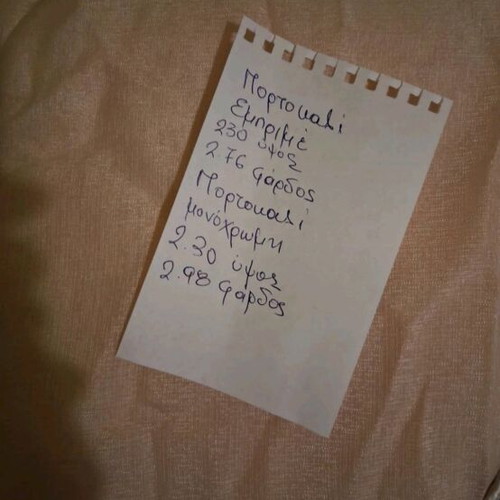 Πορτοκαλί
Εμπριμέ
230 ύψος
2.76 φάρδος
Πορτοκαλί
μονόχρωμη
2.30 ύψος
2.98 φάρδος